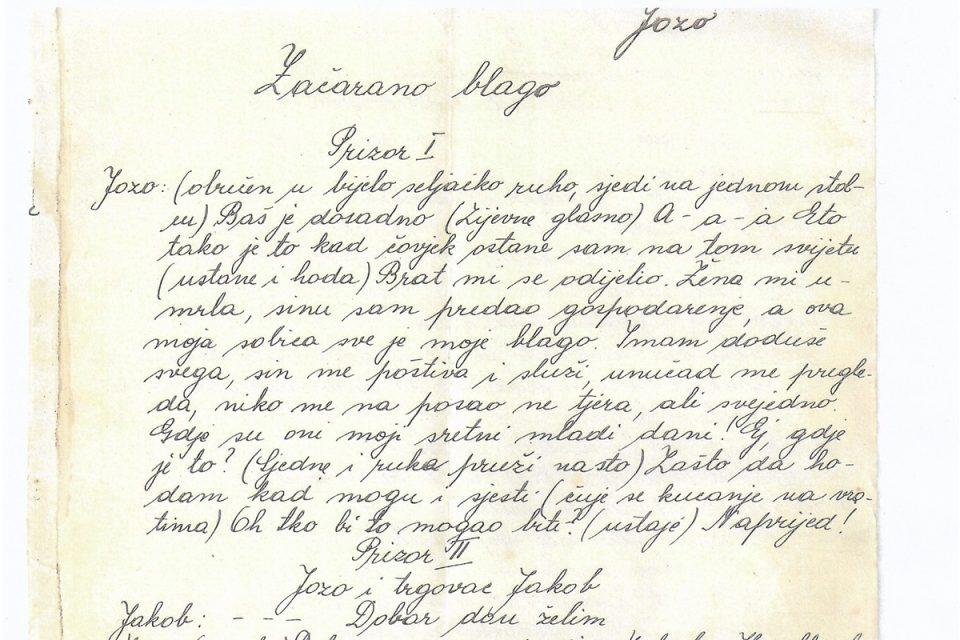 Jozo
Začarano blago
Prizor I
Jozo: (obučen u bijelo seljačko ruho, sjedi na jednom stol-
cu) Baš je dosadno (Zijevne glasno) A-a-a Eto
tako je to kad čovjek ostane sam na tom svijetu
(ustane i hoda) Brat mi se odijelio. Žena mi u-
mrla, sinu sam predao gospodarenje, a ova
moja sobica sve je moje blago. Imam doduše
svega, sin me poštiva i služi, unučad me pregle-
da, niko me na posao ne tjera, ali svejedno.
Gdje su oni moji sretni mladi dani! Ej gdje
je to? (Sjedne i ruka pruži na sto) Zašto da ho-
dam kad mogu i sjesti (čuje se kucanje na vra-
tima) Oh tko bi to mogao biti? (ustaje) Naprijed!
Prizor II
Jozo i trgovac Jakob
Jakob: - - - Dobar dan želim